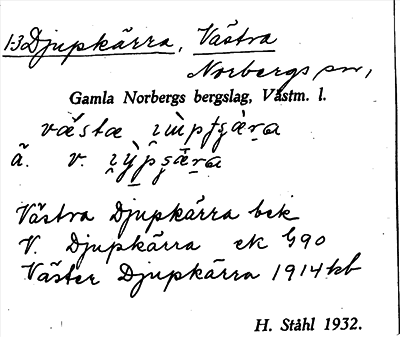 1-3 Djupkärra, Västra
Norbergs sn,
Gamla Norbergs bergslag, Västm. l.
västa
ä. v.
Västra Djupkärra bek
V. Djupkärra ek G90
Väster Djupkärra 1914 kb
H. Ståhl 1932.